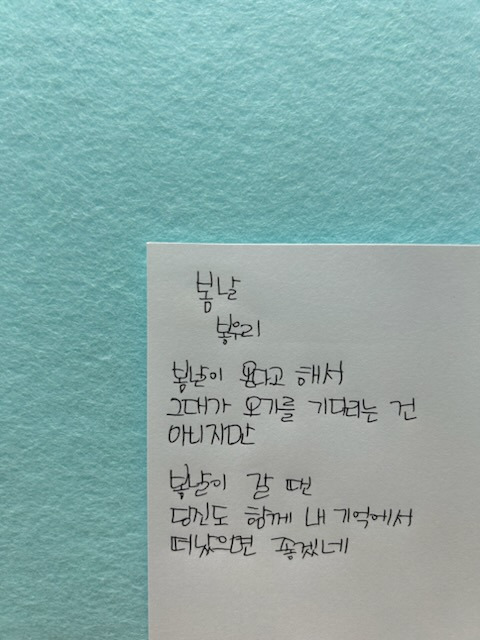 봄날
봉우리
봄날이 온다고 해서
그대가 오기를 기다리는 건
아니지만
봄날이 갈 땐
당신도 함께 내 기억에서
떠났으면 좋겠네